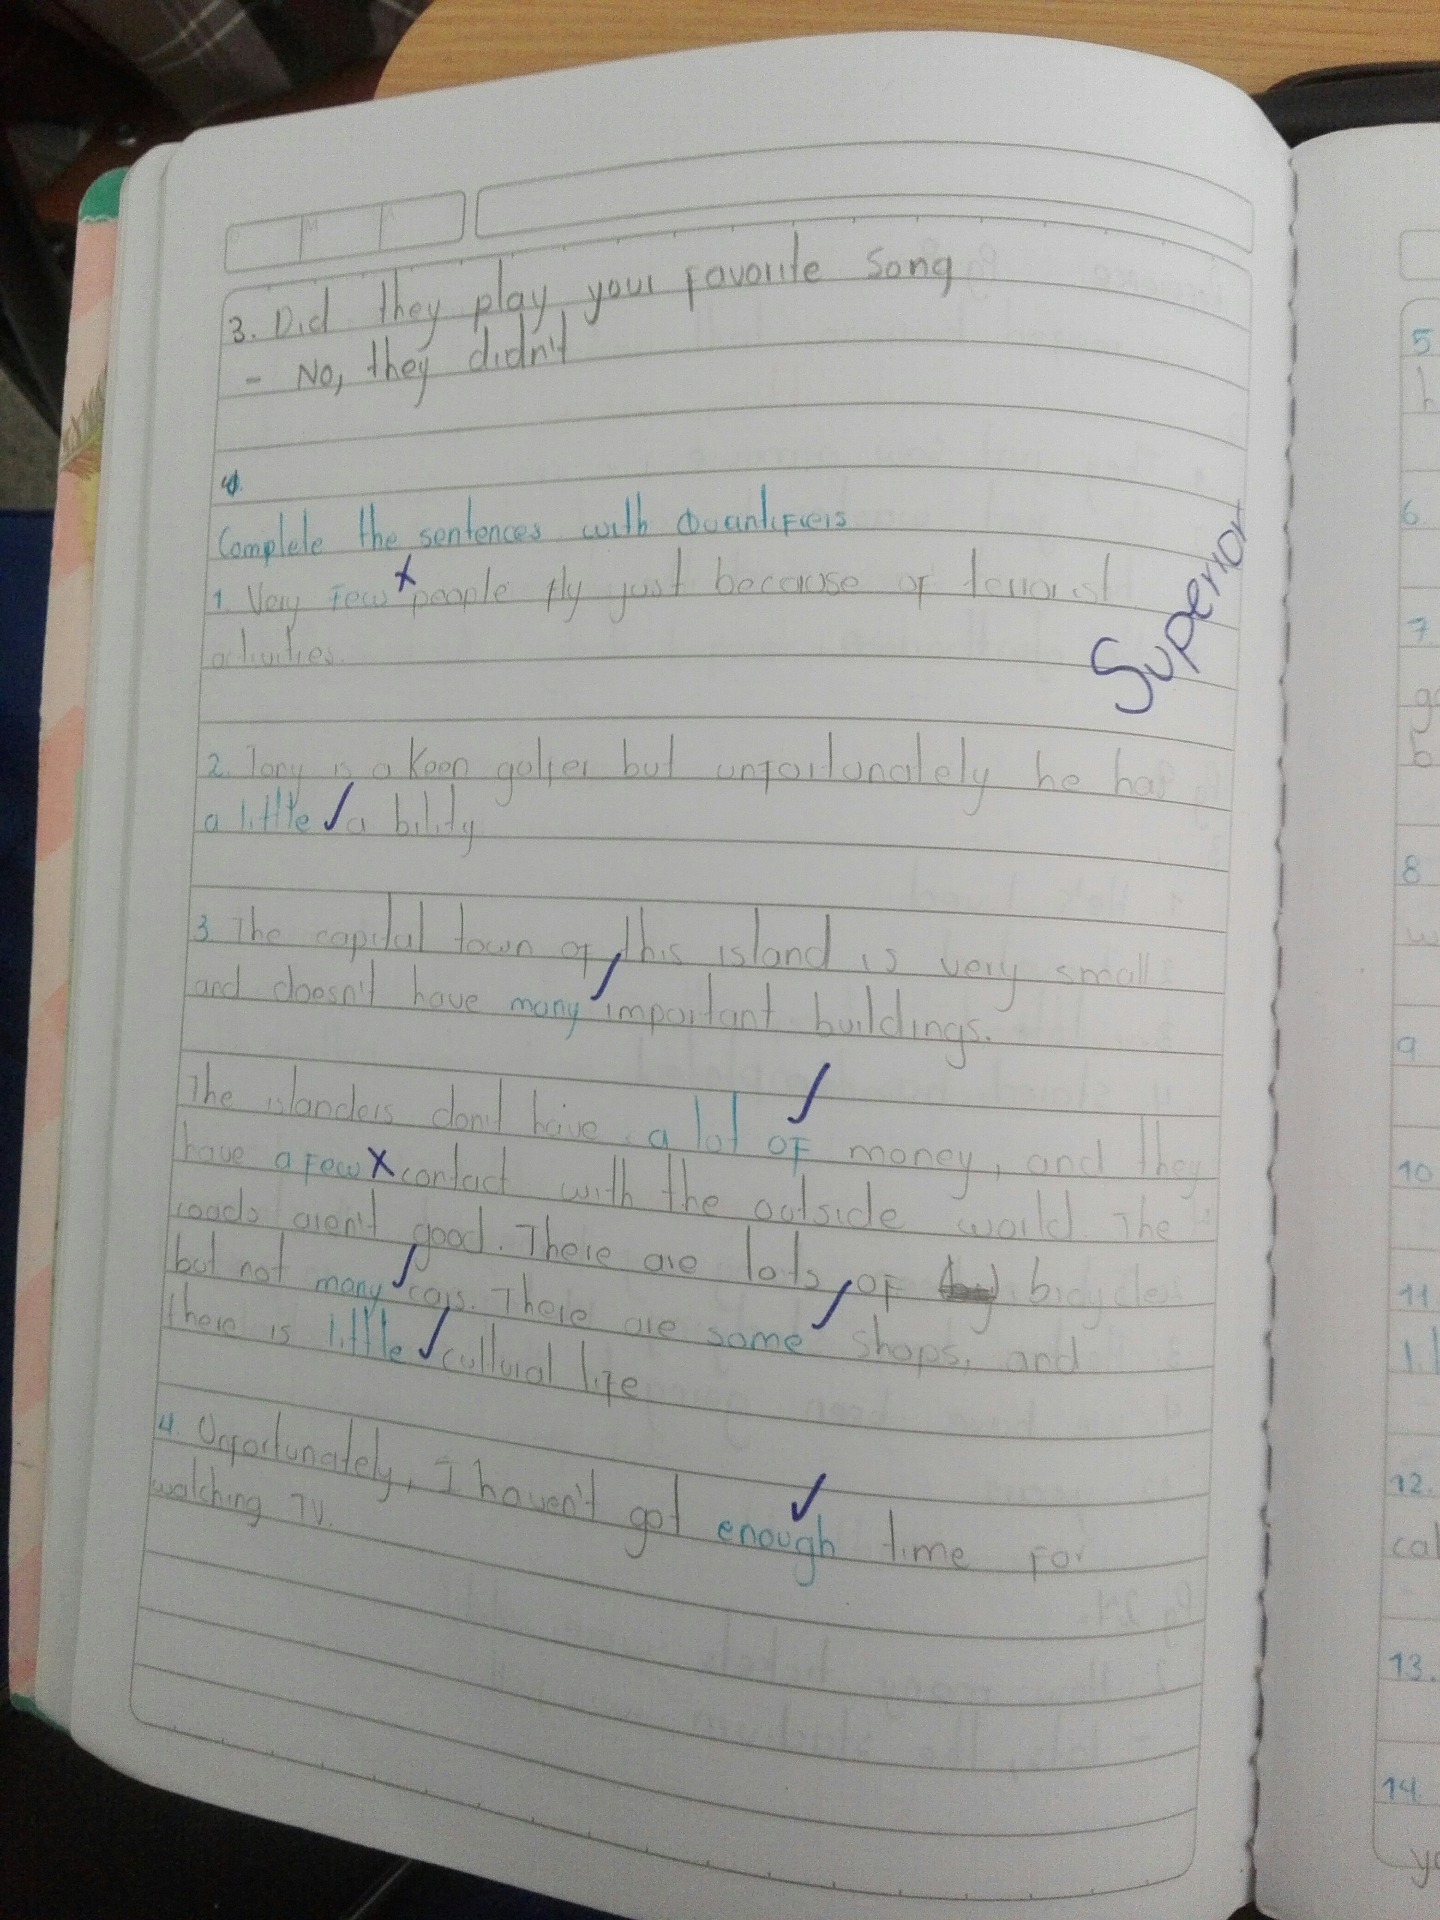 3. Did they play your favorite song
- No, they didn't
Complete the sentences with Quantifiers
1. Very Few x people fly just because of terrorist
activities.
Superior
2. Tony is a Keen golfer but unfortunately he has
a little ✓ a bility
3. The capital town of this island is very small
and doesn't have many ✓ important buildings.
The islanders don't have a lot OF ✓ money, and they
have a Few x contact with the outside world. The
roads aren't good. There are lots OF bicycles
but not many ✓ cars. There are some ✓ shops, and
there is little ✓ cultural life
4. Unfortunately, I haven't got enough ✓ time For
watching TV.
5
h
6.
7.
g
b
8
w
9
10
11.
12.
cal
13.
14.
yo